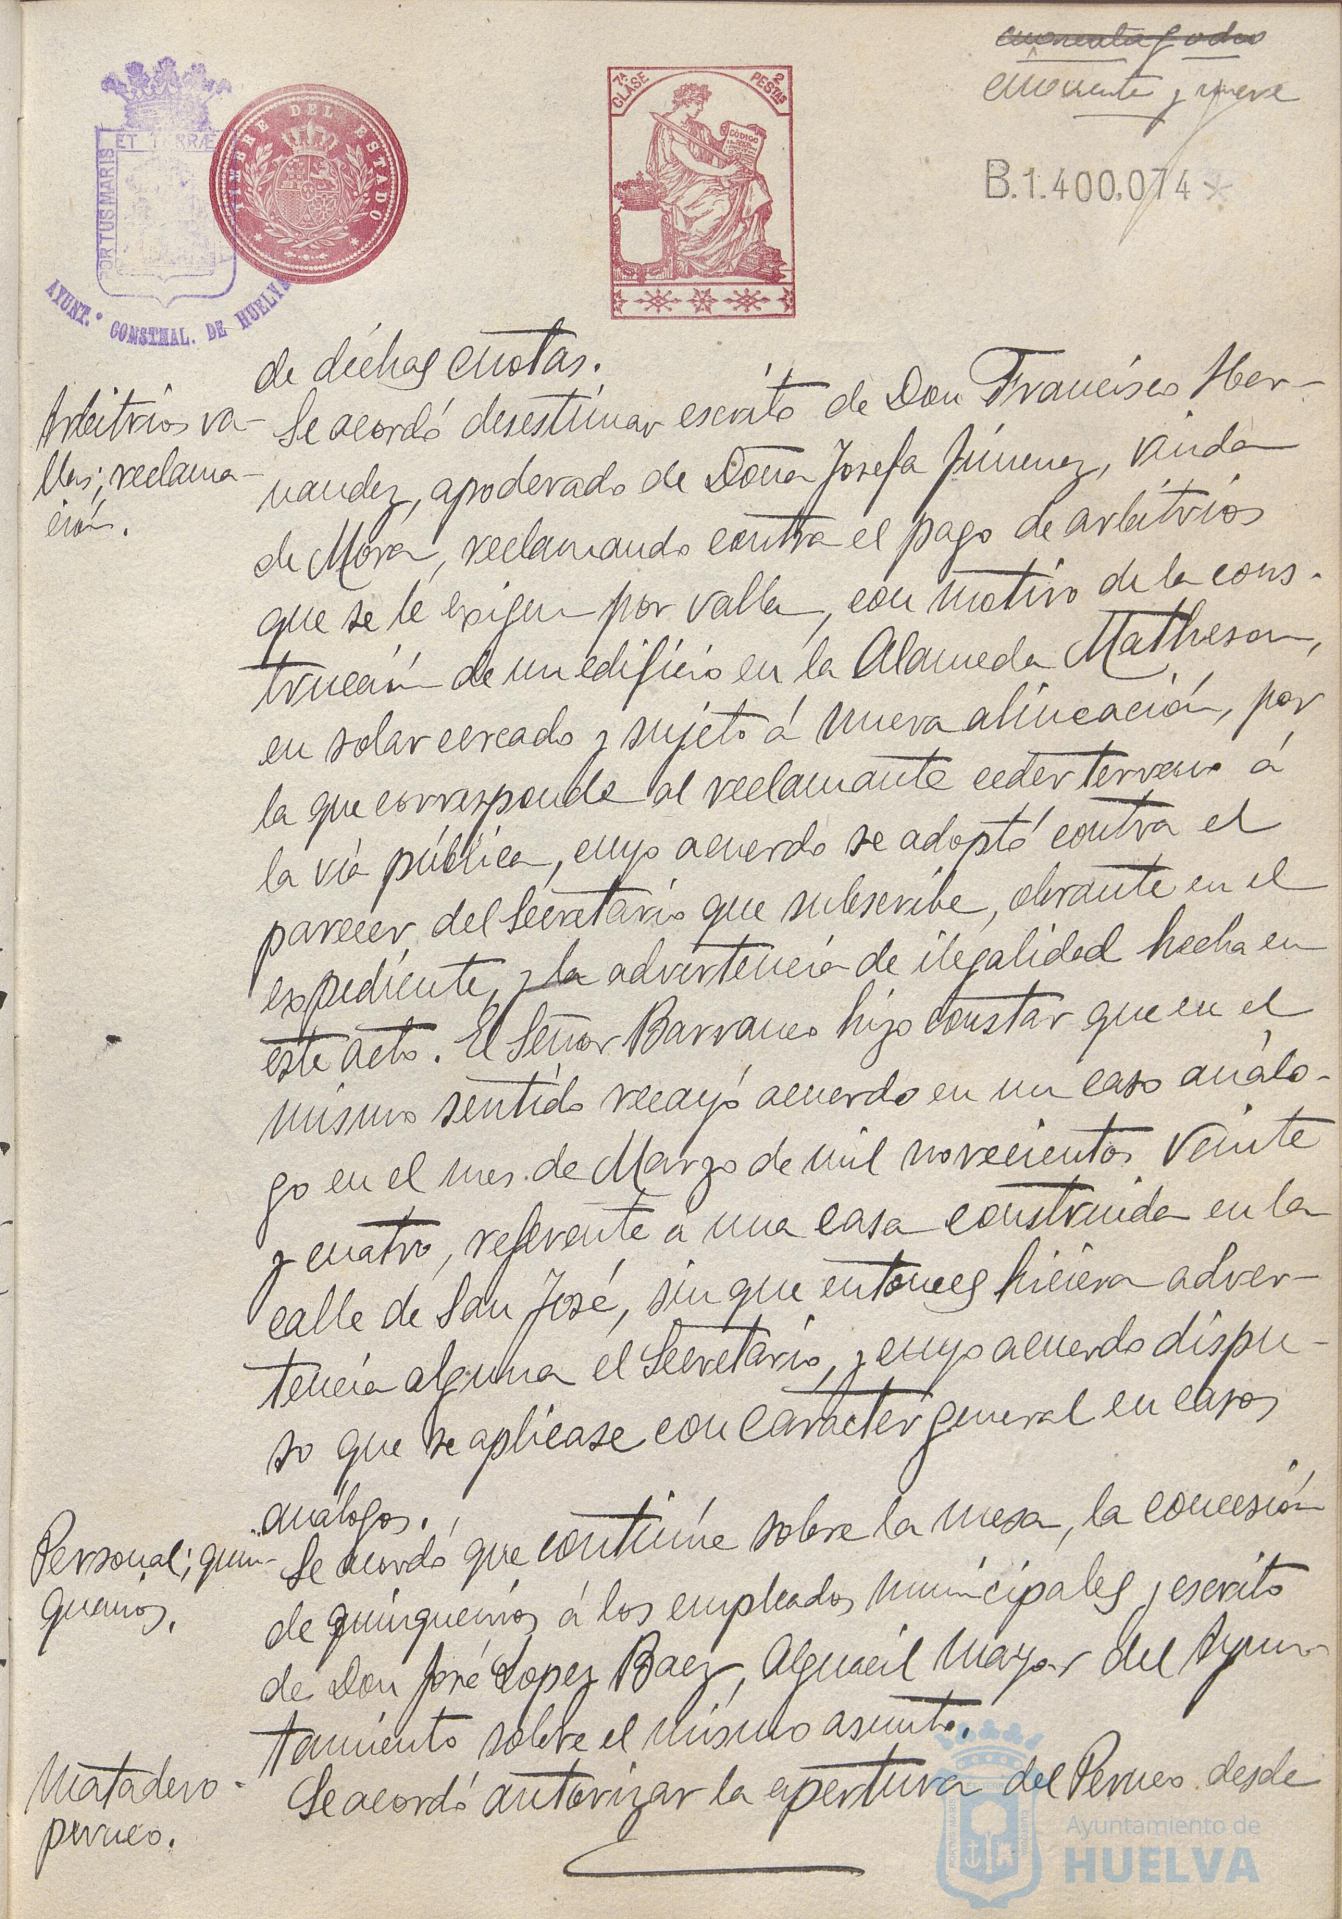 cincuenta y ocho
cincuenta y nueve
B.1.400.074*
7ª CLASE
2 PESTAS
CÓDIGO
TIMBRE DEL ESTADO
PORTUS MARIS ET TERRÆ
AYUNT.º CONSTNAL. DE HUELVA
de dichas cuotas.
Arbitrios va-
llas; reclama-
ción.
Se acordó desestimar escrito de Don Francisco Her-
nandez, apoderado de Doña Josefa Jimenez, viuda
de Mora, reclamando contra el pago de arbitrios
que se le exigen por valla, con motivo de la cons-
trucción de un edificio en la Alameda Matheson,
en solar cercado y sujeto á nueva alineación, por
la que corresponde al reclamante ceder terreno á
la vía pública, cuyo acuerdo se adoptó contra el
parecer del Secretario que subscribe, obrante en el
expediente, y la advertencia de ilegalidad hecha en
este acto. El Señor Barranco hizo constar que en el
mismo sentido recayó acuerdo en un caso análo-
go en el mes de Marzo de mil novecientos veinte
y cuatro, referente a una casa construida en la
calle de San José, sin que entonces hiciera adver-
tencia alguna el Secretario, y cuyo acuerdo dispu-
so que se aplicase con caracter general en casos
análogos.
Personal; quin-
quenios.
Se acordó que continúe sobre la mesa, la concesión
de quinquenios á los empleados municipales y escrito
de Don José Lopez Baez, Alguacil Mayor del Ayun-
tamiento sobre el mismo asunto.
Matadero-
perneo.
Se acordó autorizar la apertura del Perneo desde
Ayuntamiento de
HUELVA